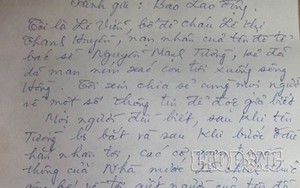 Kính gửi: Báo Lao Động
Tôi là Lê Viên, bố đẻ cháu Lê Thị
Thanh Huyền, nạn nhân của tên đồ tể
bác sĩ Nguyễn Mạnh Tường, kẻ đã
dã man ném xác con tôi xuống sông
Hồng. Tôi xin chia sẻ cùng mọi người
về một số thông tin để được giải
Mọi người đều biết, sau khi tên
Tường bị bắt và sau khi bước
nhân tôi, các cơ
thống của Nhà nước
LAODONG